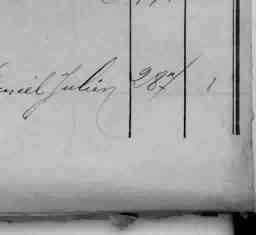 aniel Julien 287 1